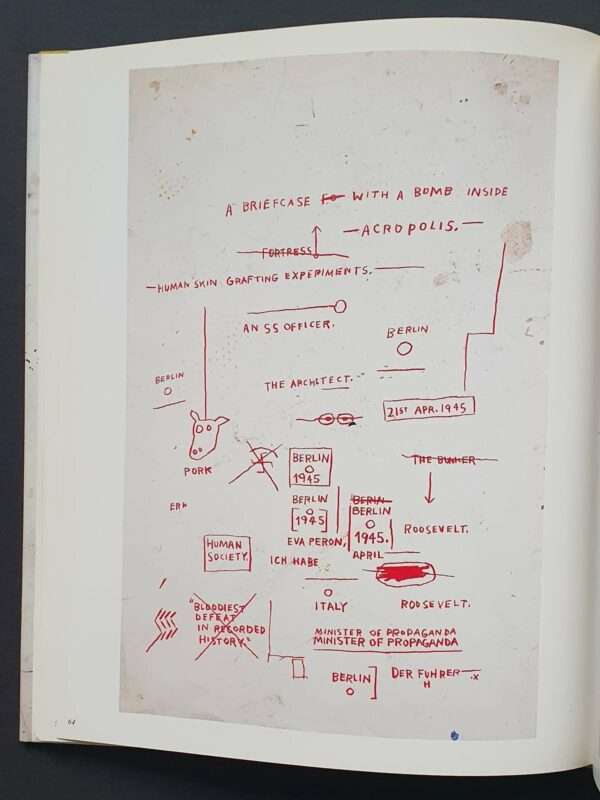 A BRIEFCASE WITH A BOMB INSIDE
—ACROPOLIS.—
FORTRESS
—HUMAN SKIN GRAFTING EXPERIMENTS.—
AN SS OFFICER.
BERLIN
BERLIN
THE ARCHITECT.
21ST APR. 1945
PORK
BERLIN
1945
THE BUNKER
BERLIN
[1945]
BERLIN
BERLIN
1945.
APRIL
ROOSEVELT.
HUMAN
SOCIETY.
EVA PERON,
ICH HABE
ITALY
ROOSEVELT.
"BLOODIEST
DEFEAT
IN RECORDED
HISTORY."
MINISTER OF PROPAGANDA
MINISTER OF PROPAGANDA
BERLIN]
DER FUHRER
H
64